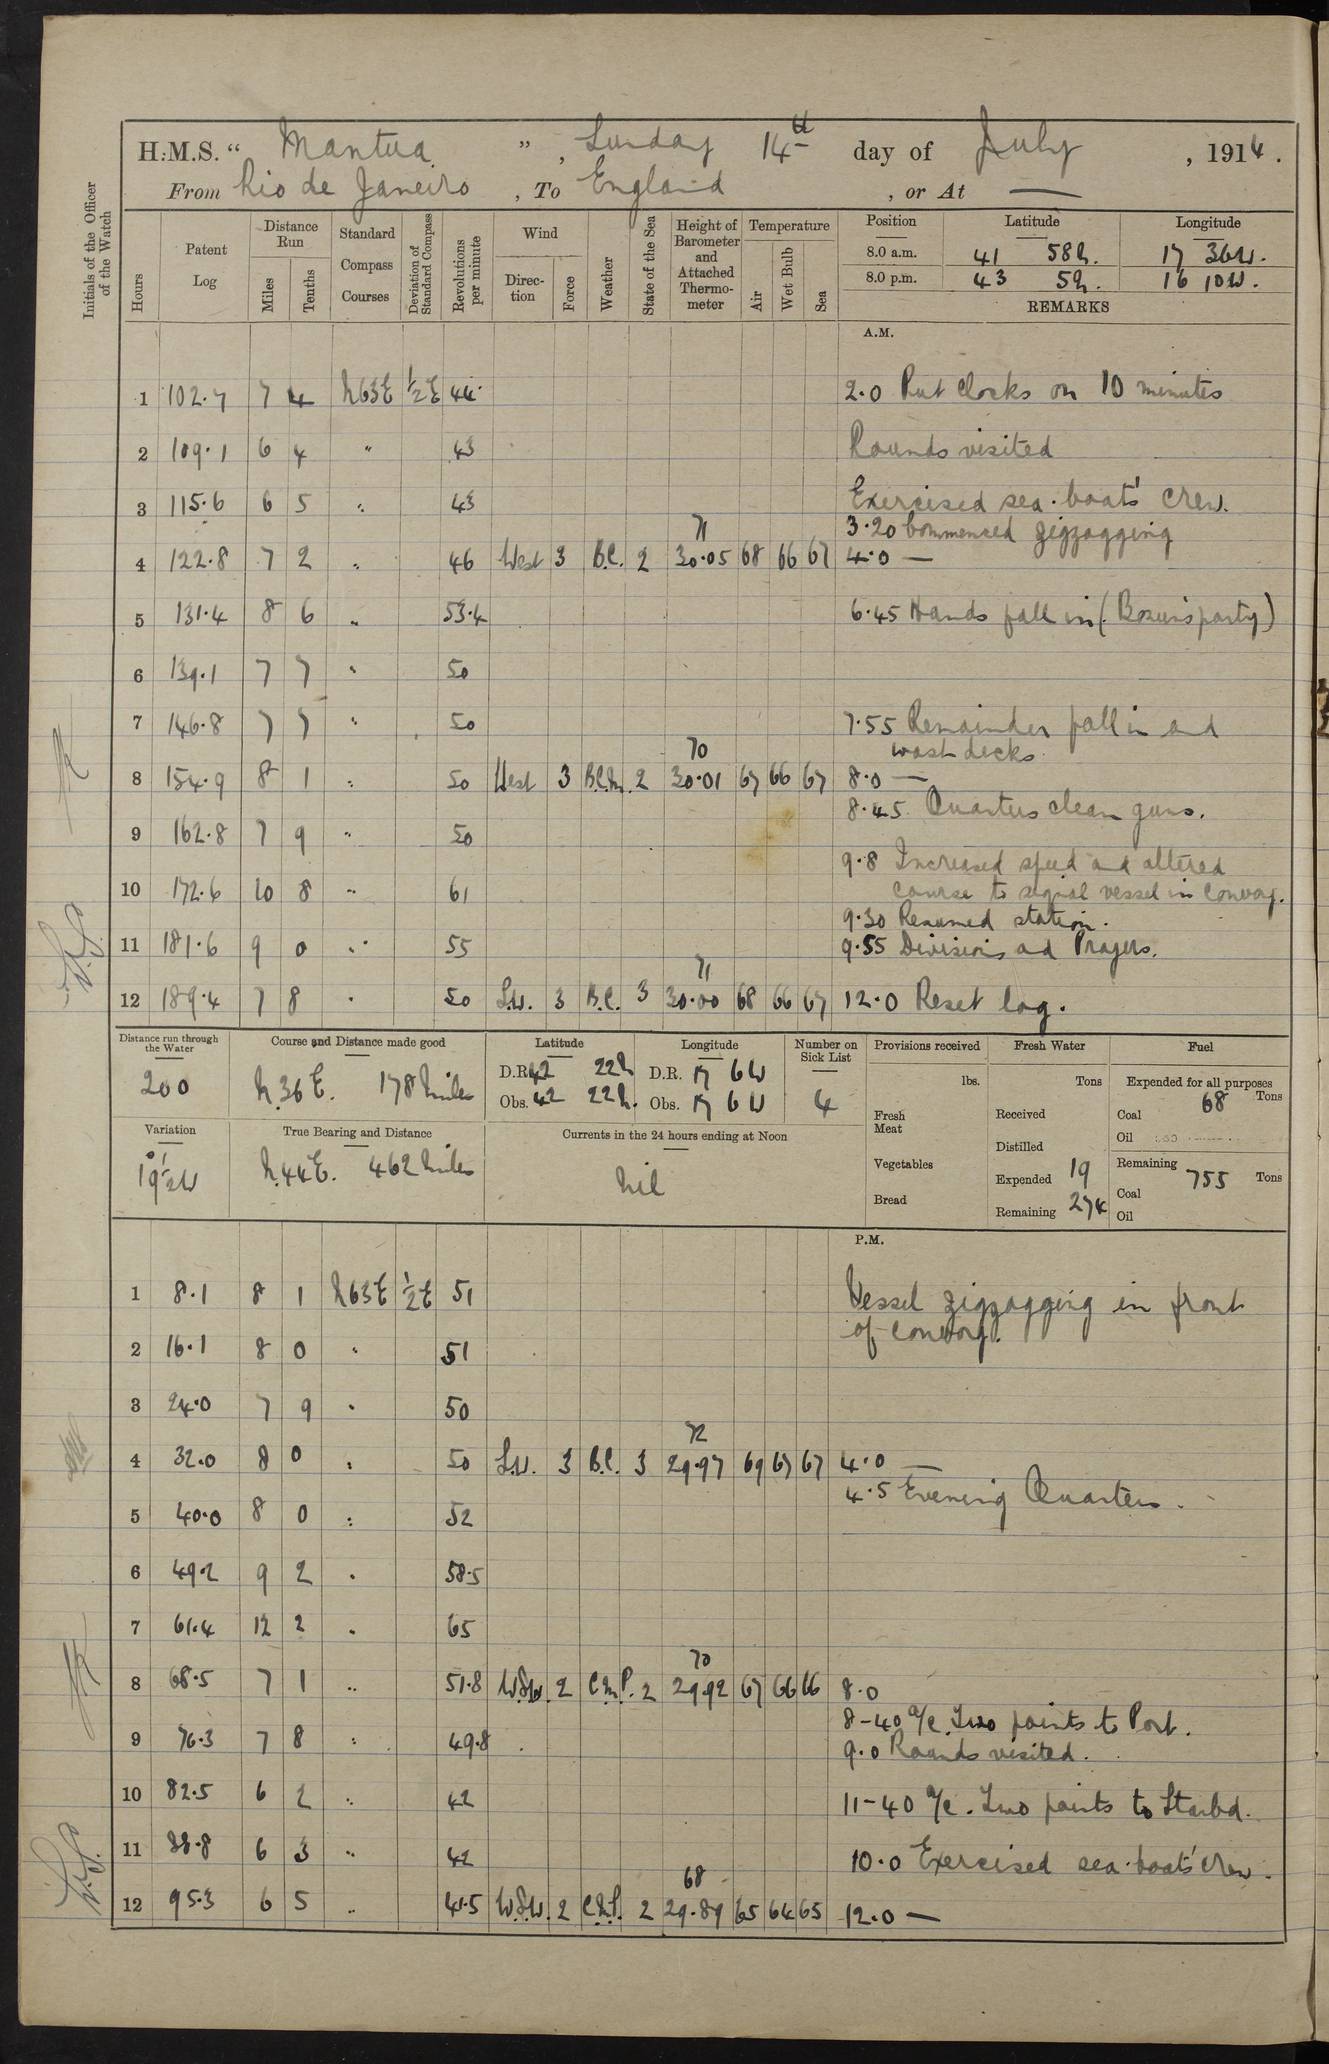 H.M.S. “ Mantua ” , Sunday 14th day of July , 1914 .
From Rio de Janeiro , To England , or At —
Initials of the Officer of the Watch
Hours
Patent Log
Distance Run
Miles
Tenths
Standard Compass Courses
Deviation of Standard Compass
Revolutions per minute
Wind
Direction
Force
Weather
State of the Sea
Height of Barometer and Attached Thermometer
Temperature
Air
Wet Bulb
Sea
Position Latitude Longitude
8.0 a.m. 41 58N. 17 36W.
8.0 p.m. 43 5N. 16 10W.
REMARKS
A.M.
1 102.7 7 4 N63E ½E 44 2.0 Put Clocks on 10 minutes
2 109.1 6 4 " 43 Rounds visited
3 115.6 6 5 " 43 Exercised sea-boats' crew.
71 3.20 Commenced zigzagging
4 122.8 7 2 " 46 West 3 B.C. 2 30.05 68 66 67 4.0 —
5 131.4 8 6 " 53.4 6.45 Hands fall in (Bosun's party)
6 139.1 7 7 " 50
7 146.8 7 7 " 50 7.55 Remainder fall in and
70 wash decks.
8 154.9 8 1 " 50 West 3 B.C.M. 2 30.01 67 66 67 8.0 —
8.45 Quarters clean guns.
9 162.8 7 9 " 50
9.8 Increased speed and altered
10 172.6 10 8 " 61 course to signal vessel in convoy.
9.30 Resumed station.
11 181.6 9 0 " 55 9.55 Divisions and Prayers.
71
12 189.4 7 8 " 50 S.W. 3 B.C. 3 30.00 68 66 67 12.0 Reset log.
Distance run through the Water
200
Course and Distance made good
N.36E. 178 Miles
Latitude
D.R. 42 22N
Obs. 42 22N.
Longitude
D.R. 17 6W
Obs. 17 6W
Number on Sick List
4
Provisions received
lbs.
Fresh Meat
Vegetables
Bread
Fresh Water
Tons
Received
Distilled
Expended 19
Remaining 274
Fuel
Expended for all purposes
Coal 68 Tons
Oil
Remaining 755 Tons
Coal
Oil
Variation
19½W
True Bearing and Distance
N.44E. 462 Miles
Currents in the 24 hours ending at Noon
Nil
P.M.
1 8.1 8 1 N63E ½E 51 Vessel zigzagging in front
of convoy.
2 16.1 8 0 " 51
3 24.0 7 9 " 50
72
4 32.0 8 0 " 50 S.W. 3 B.C. 3 29.97 69 67 67 4.0 —
4.5 Evening Quarters.
5 40.0 8 0 " 52
6 49.2 9 2 " 58.5
7 61.4 12 2 " 65
70
8 68.5 7 1 " 51.8 W.S.W. 2 C.M.P. 2 29.92 67 66 66 8.0
8-40 a/c. Two points to Port.
9 76.3 7 8 " 49.8 9.0 Rounds visited.
10 82.5 6 2 " 42 11-40 a/c. Two points to Starbd.
11 88.8 6 3 " 42 10.0 Exercised sea-boats' crew.
68
12 95.3 6 5 " 41.5 W.S.W. 2 2 29.89 65 64 65 12.0 —